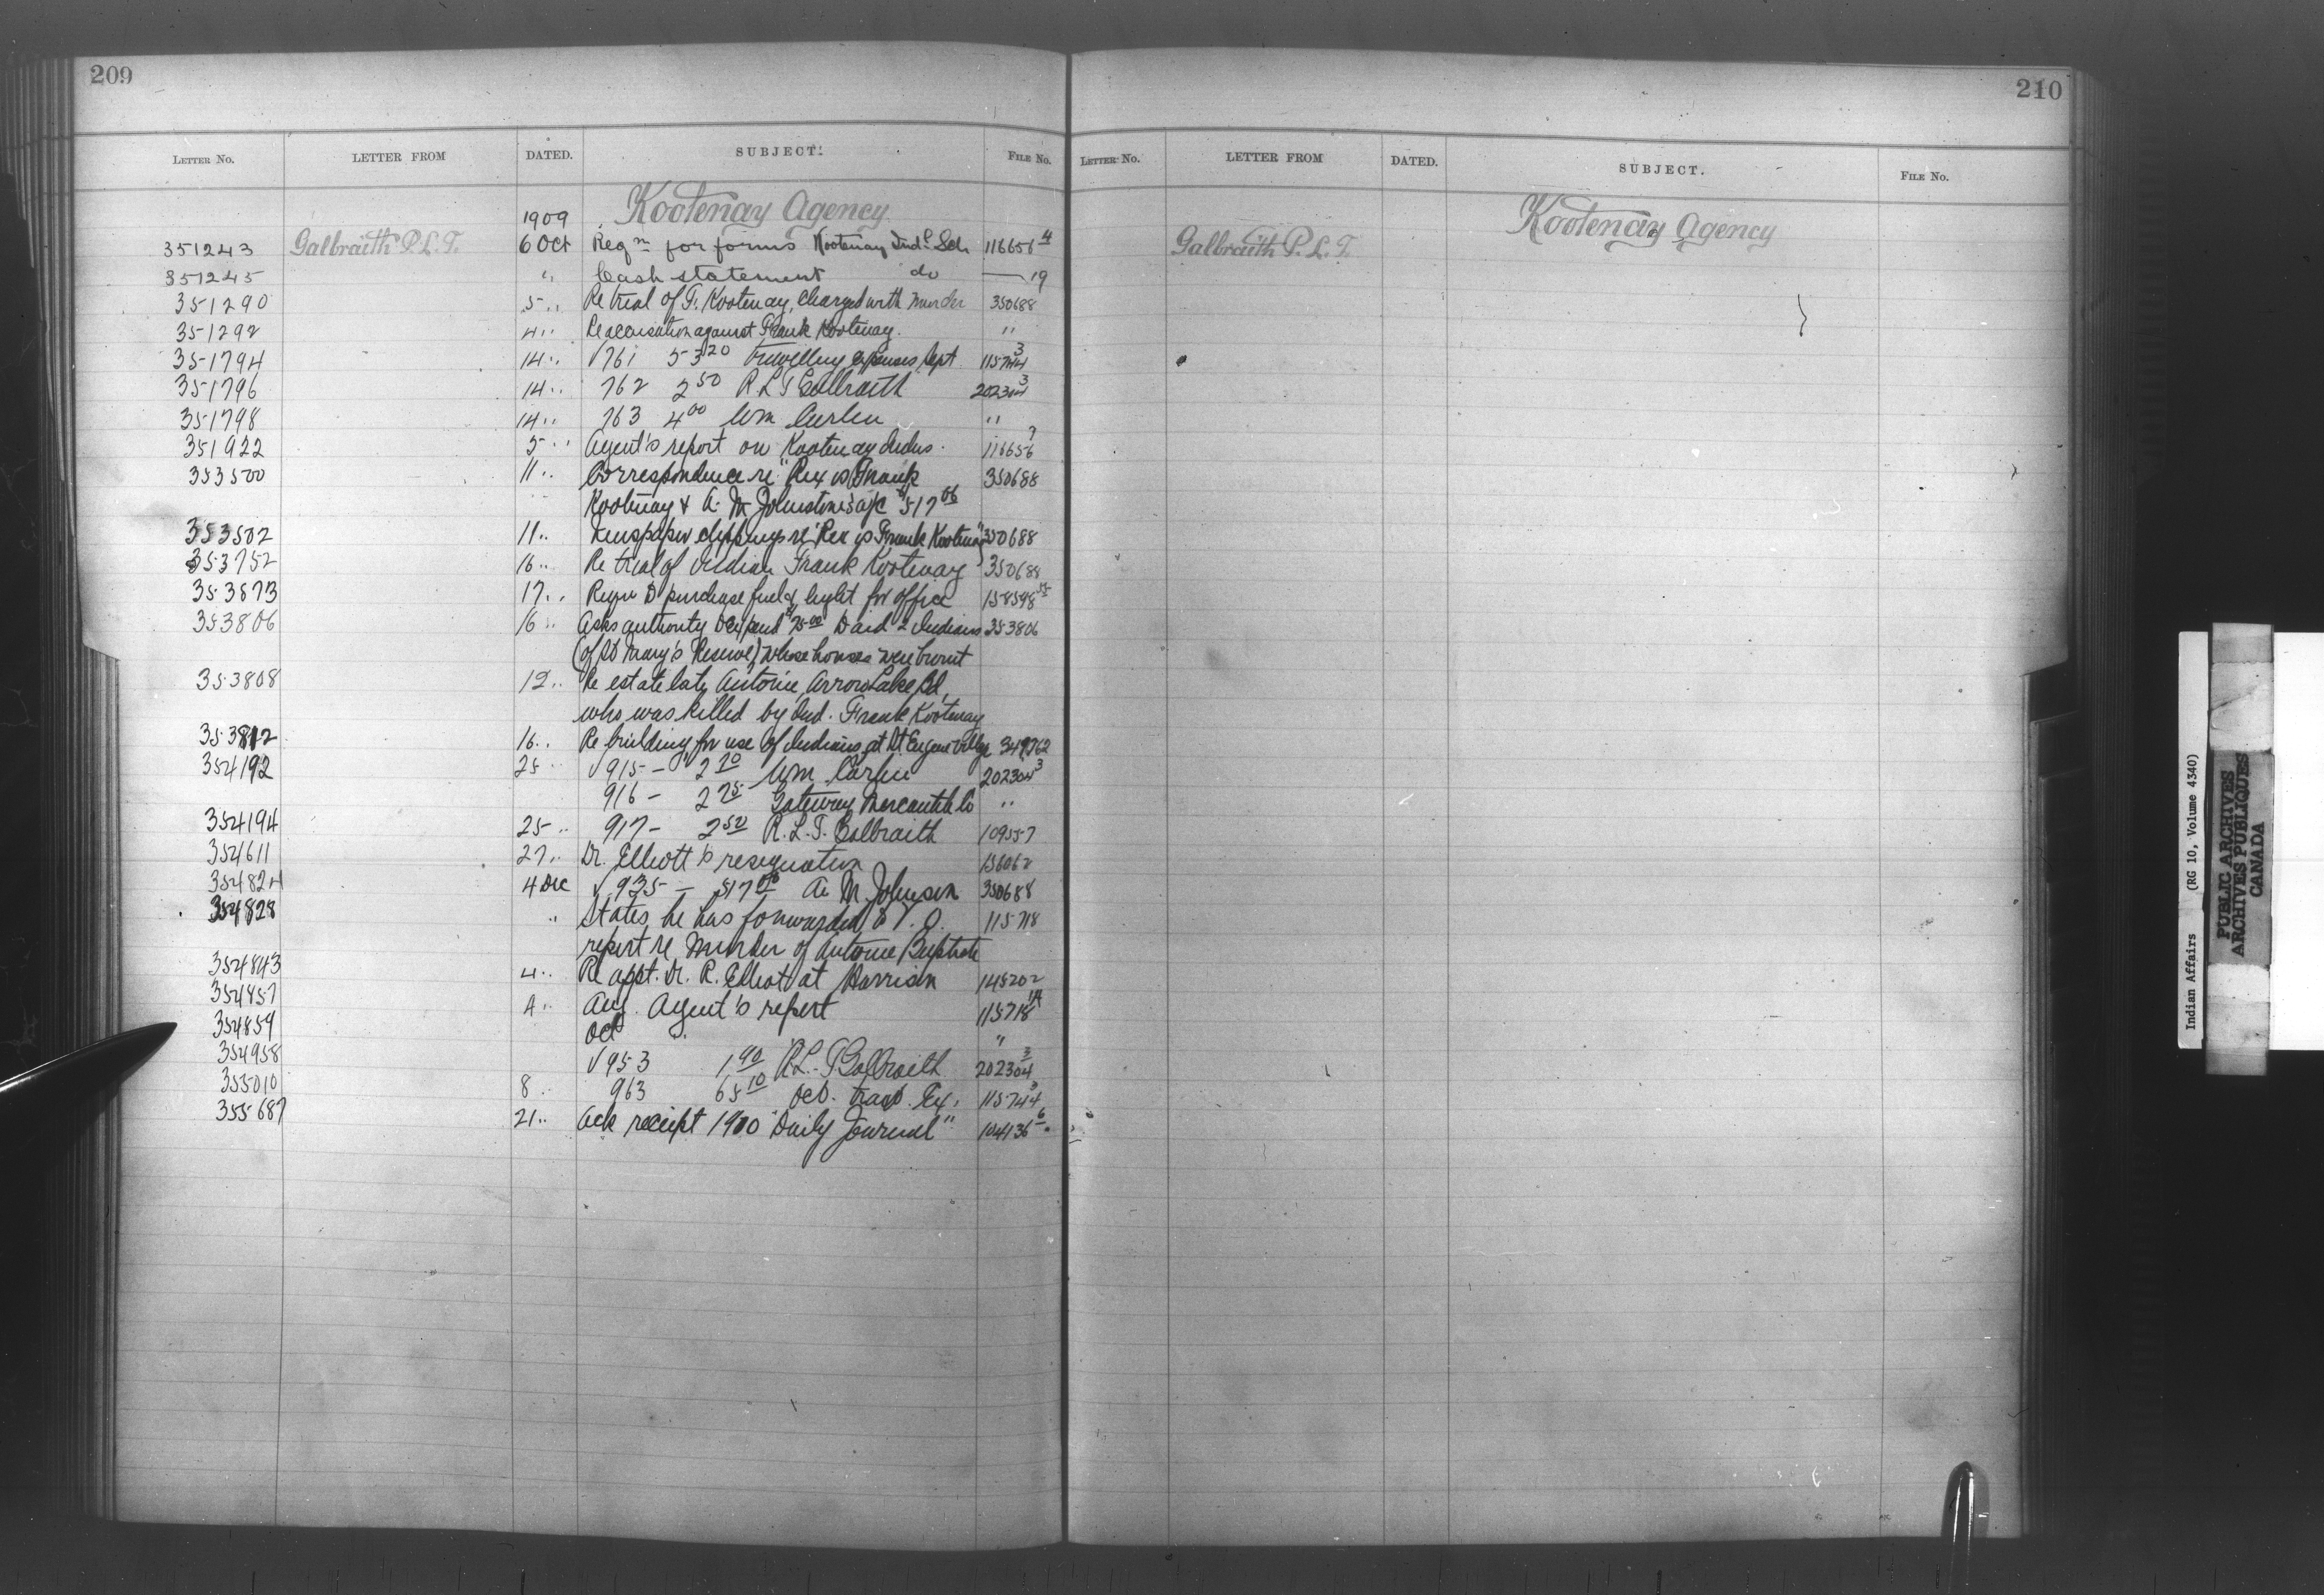 209
LETTER No. LETTER FROM DATED. SUBJECT. FILE No.
1909 Kootenay Agency
351243 Galbraith P.L.T. 6 Oct Reqn for forms Kootenay Indl Sch 116656 4
351245 " Cash statement do — 19
351290 5 " Re trial of F. Kootenay, Charged with Murder 350688
351292 4 " Re accusation against Frank Kootenay. "
351794 14 " √761 53 20 travelling expenses Sept 115744 3
351796 14 " 762 2 50 R L T Galbraith 202304 3
351798 14 " 763 4 00 Wm Carlin "
351922 5 " Agent's report on Kootenay Indus. 116656 7
353500 11 " Correspondence re "Rex vs Frank 350688
Kootenay & A. M Johnstone's a/c $517 06
353502 11 " Newspaper clippings re "Rex vs Frank Kootenay" 350688
353752 16 " Re trial of Indian Frank Kootenay 350688
17 " purchase fuel & light for office 158598
353806 16 " Asks authority to expend $75 00 to aid 2 Indians 353806
(of St Mary's Reserve) whose houses were burnt
353808 12 " Re estate late Antoine, Arrow Lake Bd,
who was killed by Ind. Frank Kootenay
353812 16 " Re building for use of Indians at St Eugene Village 349762
354192 25 " √915 - 2 70 Wm. Carlin 202304 3
916 - 2 75 Gateway Mercantile Co "
354194 25 " 917 - 2 50 R. L. T. Galbraith 109557
354611 27 " Dr. Elliott's resignation
354824 4 Dec √ 935 - 517 06 A. M. Johnson 350688
354828 " States he has forwarded to V. O. 115718
report re Murder of Antoine Baptiste
354843 4 " Re appt. Dr. R. Elliot at Harrison 145202
354857 4 " Aug. Agent's report 115718 14
354859 Oct "
354958 √953 1 90 R.L.T Galbraith 202304 3
355010 8 " 963 65 10 Oct. trav. Ex. 115744 3
355687 21 " Ack receipt 1910 "Daily Journal" 104136 6
210
LETTER No. LETTER FROM DATED. SUBJECT. FILE No.
Kootenay Agency
Galbraith P. L. T.
Indian Affairs (RG 10, Volume 4340)
PUBLIC ARCHIVES
ARCHIVES PUBLIQUES
CANADA